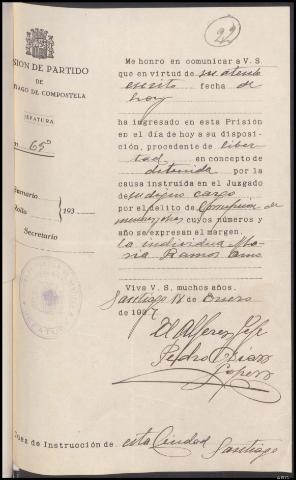 22
SION DE PARTIDO
DE
AGO DE COMPOSTELA
EFATURA
m. 65º
Sumario
Rollo
193
Secretario
Me honro en comunicar a V. S.
que en virtud de su atento
escrito fecha de
hoy
ha ingresado en esta Prisión
en el día de hoy a su disposi-
ción, procedente de liber-
tad en concepto de
detenida por la
causa instruida en el Juzgado
de su digno cargo
por el delito de
cuyos números y
año se expresan al margen.
la individua Ma-
ria Ramos
Viva V. S. muchos años.
Santiago 18 de Enero
de 193
El Alferez Jefe
Pedro Diaz
Lopez
Juez de Instrucción de esta Ciudad Santiago